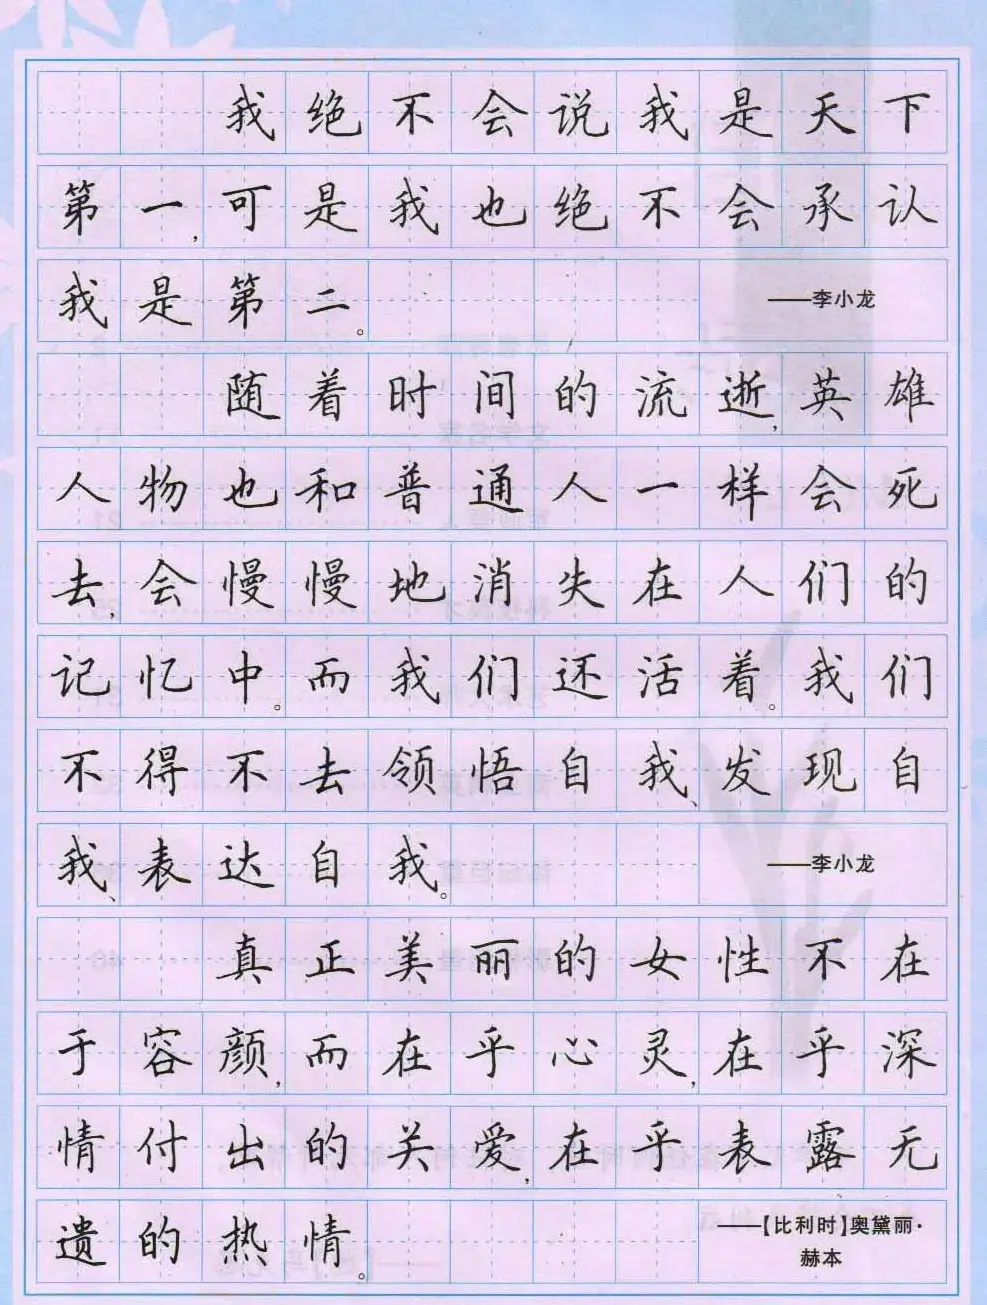 我绝不会说我是天下
第一,可是我也绝不会承认
我是第二。 ——李小龙
随着时间的流逝,英雄
人物也和普通人一样会死
去,会慢慢地消失在人们的
记忆中。而我们还活着。我们
不得不去领悟自我、发现自
我、表达自我。 ——李小龙
真正美丽的女性不在
于容颜,而在乎心灵,在乎深
情付出的关爱,在乎表露无
遗的热情。 ——【比利时】奥黛丽·
赫本